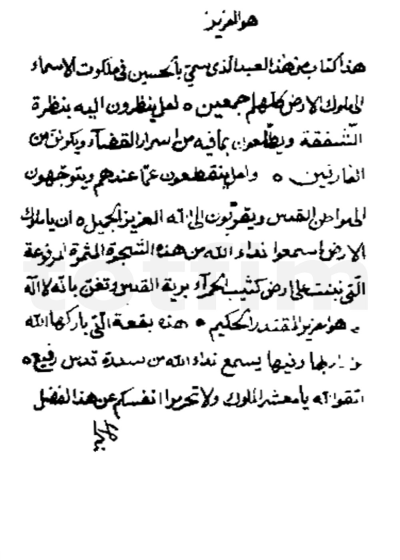 هو العزيز
هذا كتاب من هذا العبد الذى سمّى بالحسين فى ملكوت الاسماء
الى ملوك الارض كلهم اجمعين ه لعل ينظرون اليه بنظرة
الشفقة ويطّلعون بما فيه من اسرار القضآء ويكونن من
العارفين ه ولعل ينقطعون عمّا عندهم ويتوجّهون
الى مواطن القدس ويقرّبون الى الله العزيز الجميل ه ان يا ملوك
الارض اسمعوا ندآء الله من هذه الشجرة المثمرة المرفوعة
الّتى نبتت على ارض كثيب الحمرآء برية القدس وتغنّ بانّه لا اله
هو العزيز المقتدر الحكيم ه هذه بقعة الّتى باركها الله
وفيها يسمع ندآء الله من سدرة قدس رفيع ه
اتقوا الله يا معشر الملوك ولا تحرموا انفسكم عن هذا الفضل